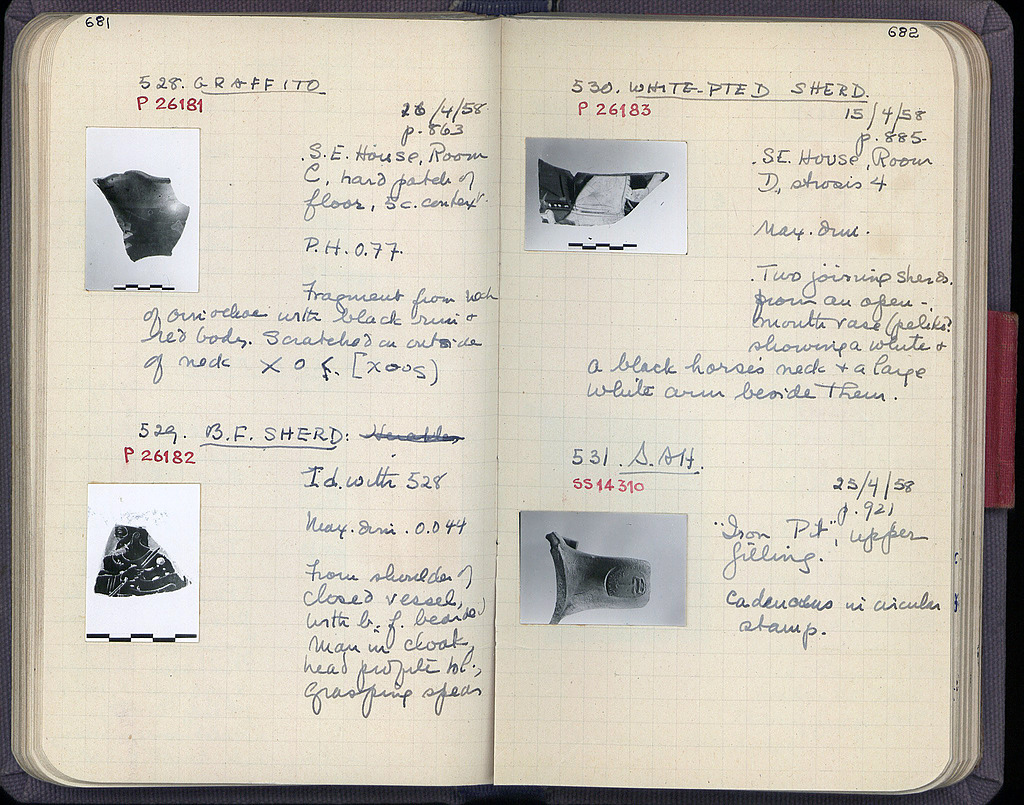 681
528. GRAFFITO
P 26181
26/4/58
p. 863
S.E. House, Room
C, hard patch of
floor, 5 c. context.
P.H. 0.77.
Fragment from neck
of oinochoe with black rim &
red body. Scratched on outside
of neck X O [XOOS]
529. B.F. SHERD:
P 26182
Id. with 528
Max. dim. 0.044
From shoulder of
closed vessel,
with b.f. bearded
man in cloak,
head profile to l.,
grasping spear
682
530. WHITE-PTED SHERD.
P 26183
15/4/58
p. 885.
SE. House, Room
D, strosis 4
Max. dim.
Two joining sherds
from an open-
mouth vase (pelike?
showing a white &
a black horse's neck & a large
white arm beside them.
531. S.AH.
SS 14310
25/4/58
p. 921
"Iron Pit", upper
filling.
Caduceus in circular
stamp.